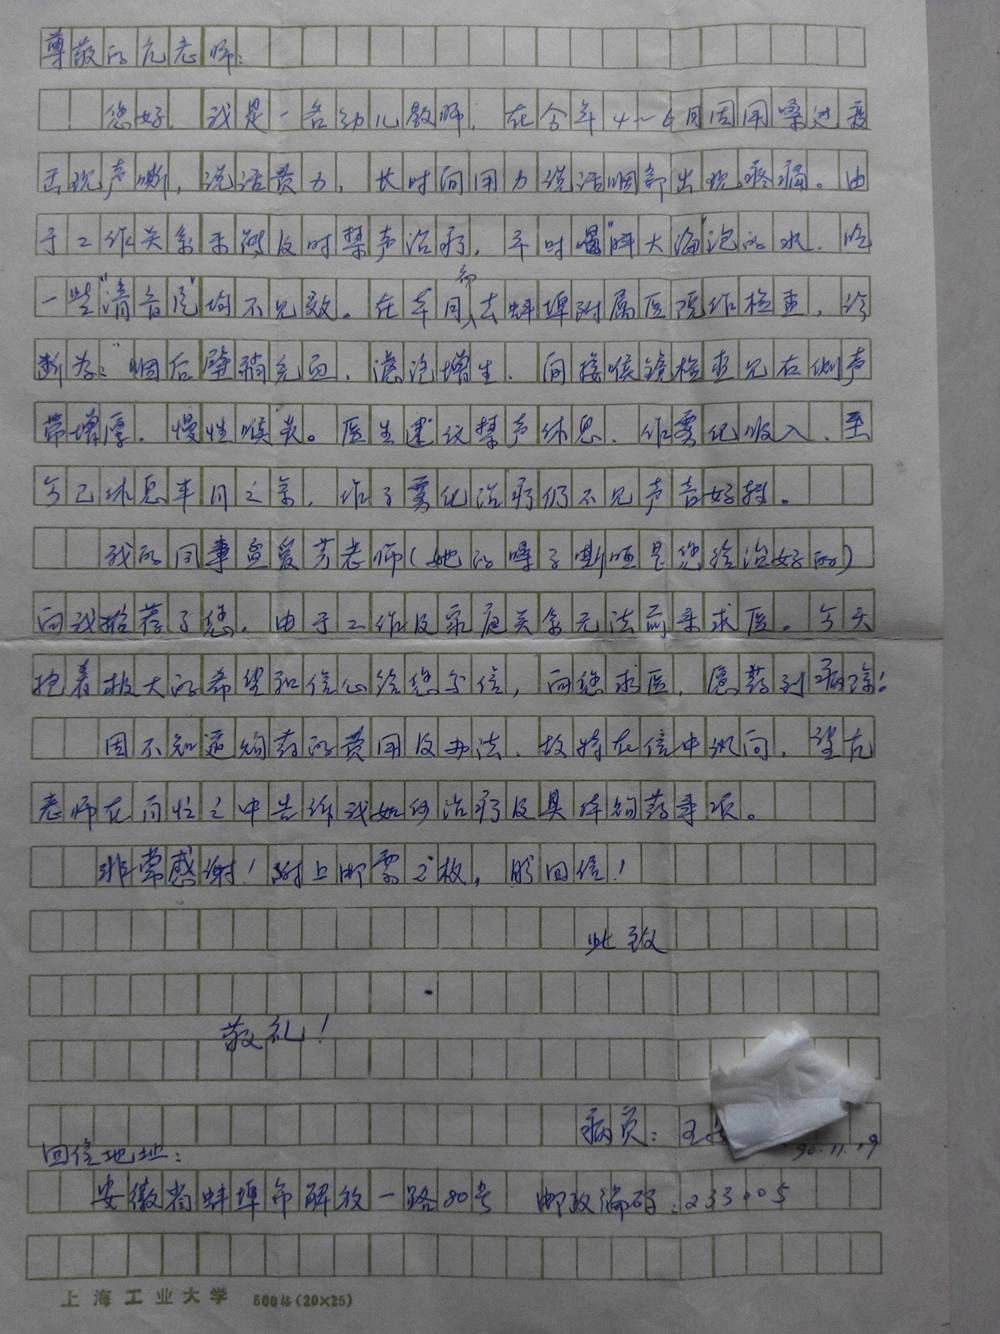 尊敬的亢老师：
您好，我是一名幼儿教师，在今年4～6月因用嗓过度
出现声嘶，说话费力，长时间用力说话咽部出现疼痛。由
于工作关系未能及时禁声治疗，平时喝"胖大海"泡的水，吃
一些"清音丸"均不见效。在半月前去蚌埠附属医院作检查，诊
断为："咽后壁稍充血，滤泡增生，间接喉镜检查见右侧声
带增厚，慢性喉炎。医生建议禁声休息，作雾化吸入，至
今已休息半月之余，作了雾化治疗仍不见声音好转。
我的同事孟爱芳老师（她的嗓子嘶哑是您给治好的）
向我推荐了您，由于工作及家庭关系无法前来求医。今天
抱着极大的希望和信心给您写信，向您求医，愿药到病除！
因不知道购药的费用及办法，故特在信中询问，望亢
老师在百忙之中告诉我如何治疗及具体购药事项。
非常感谢！附上邮票2枚，盼回信！
此致
敬礼！
病员：王
90.11.19
回信地址：
安徽省蚌埠市解放一路80号 邮政编码：233
上海工业大学 500格(20×25)